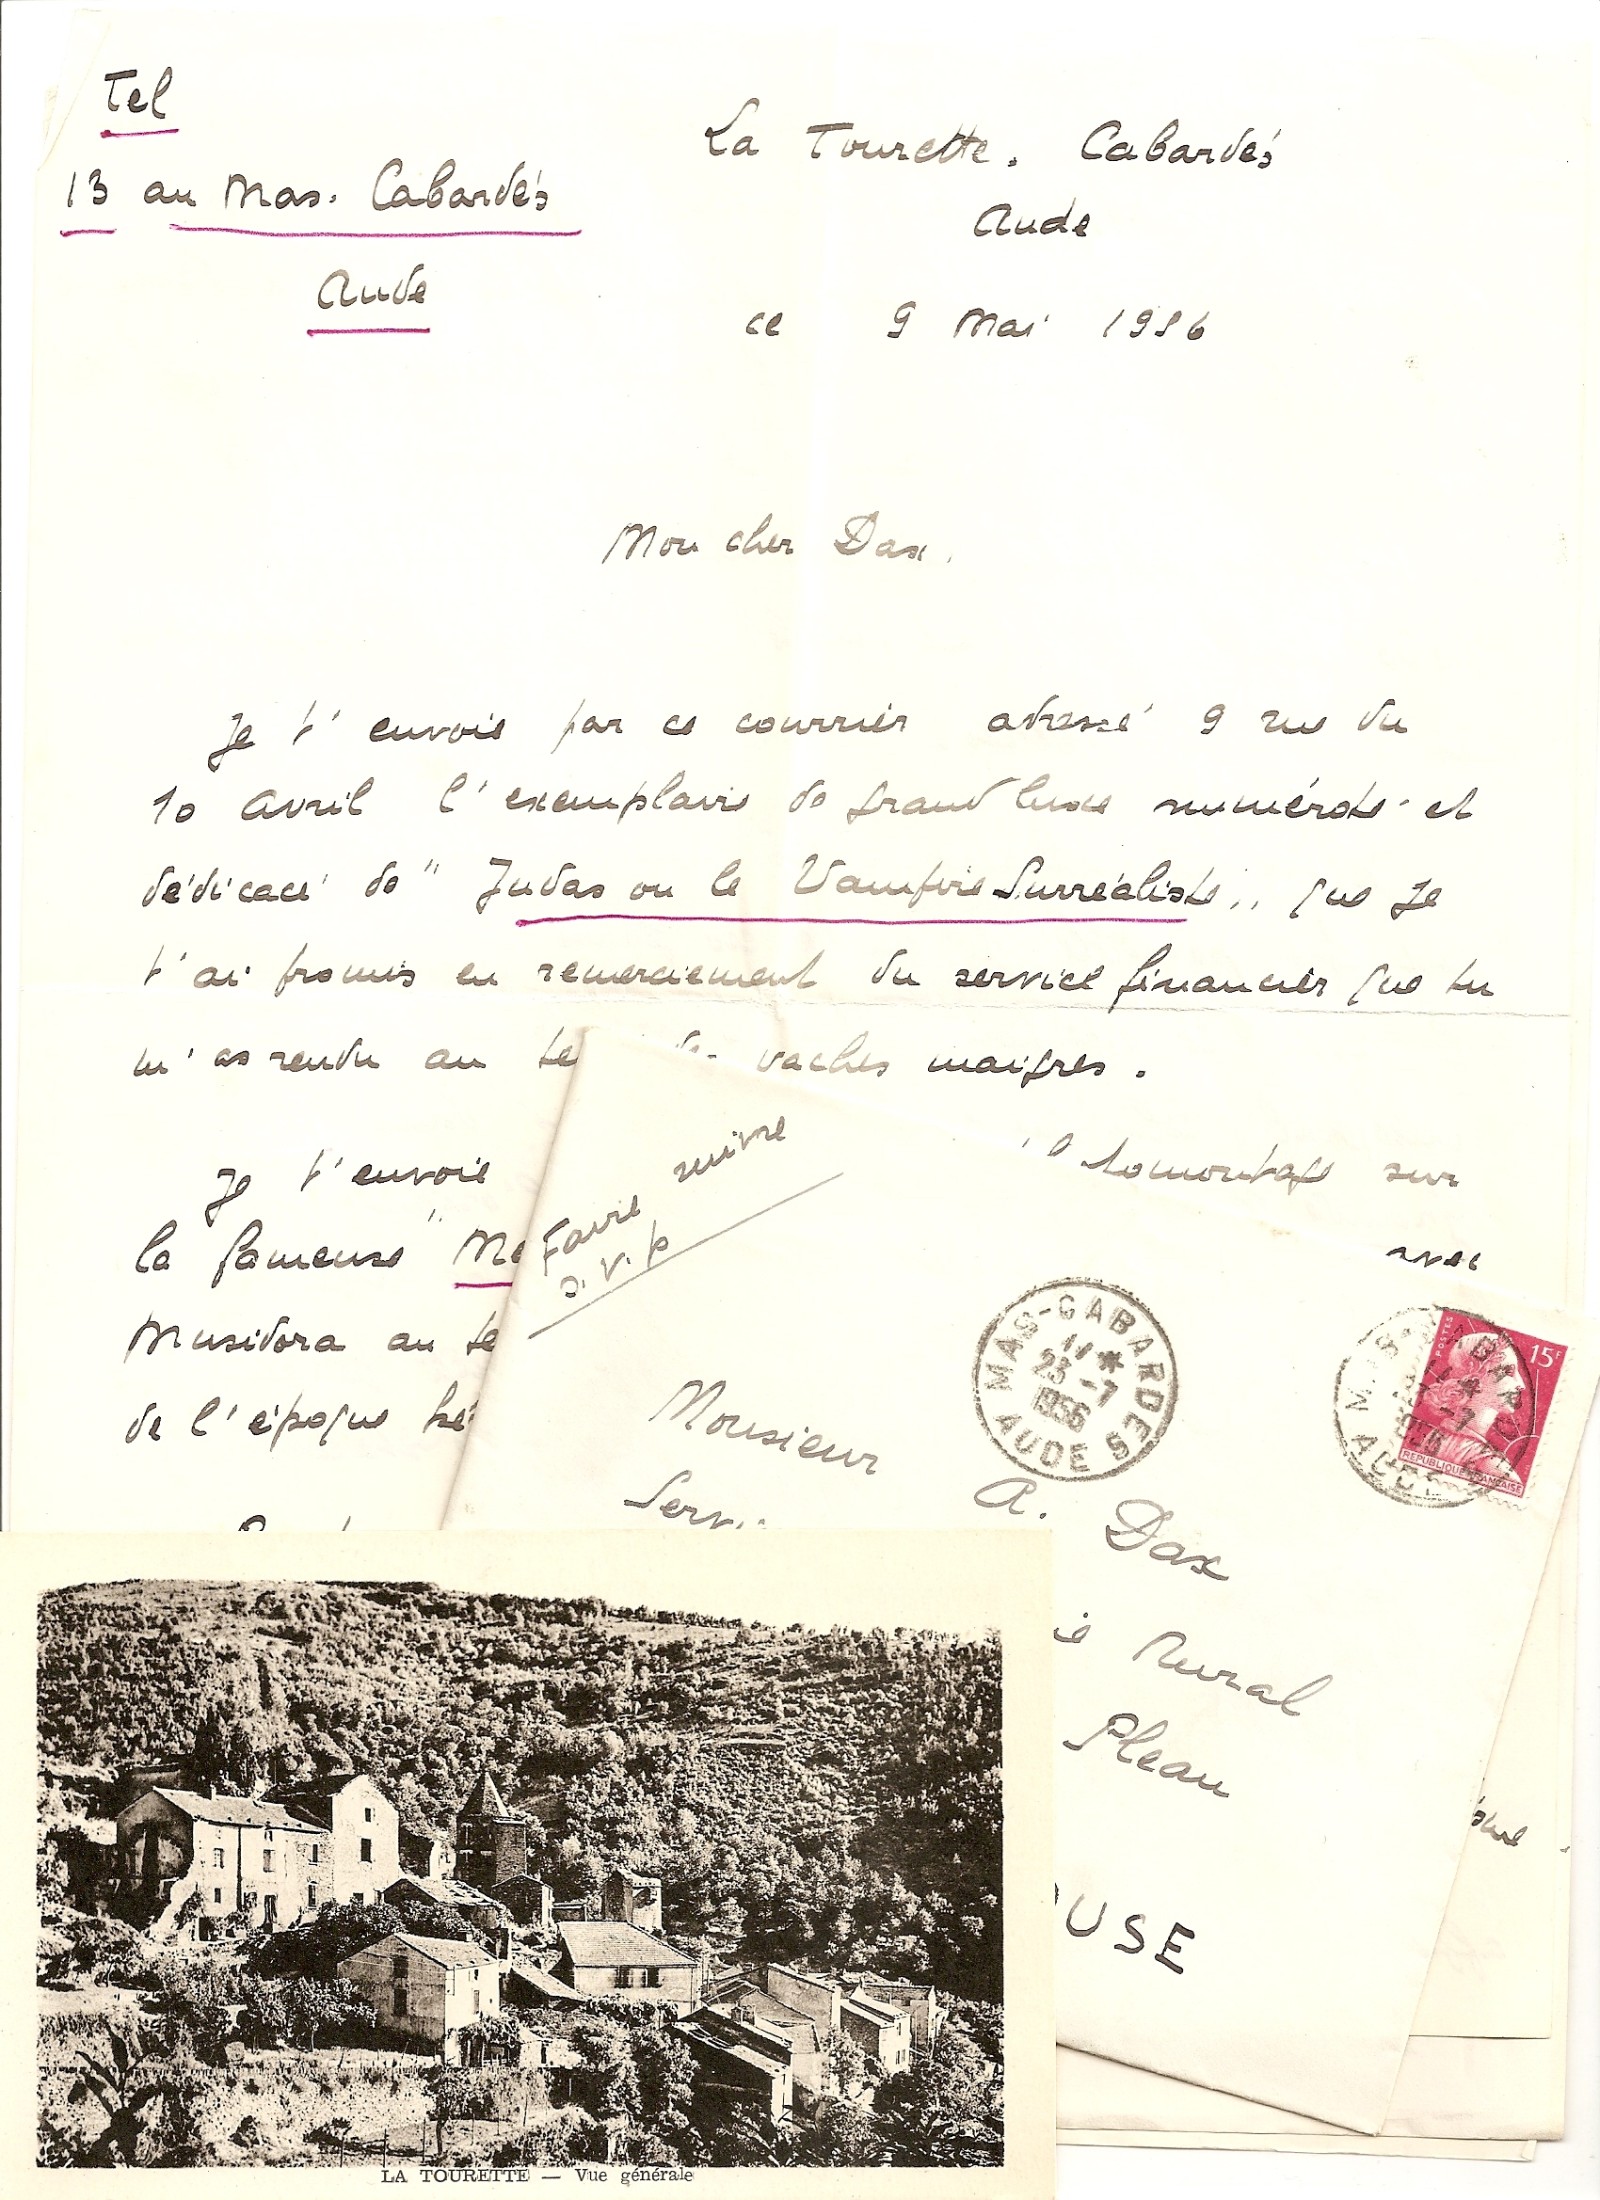 Tel
13 au Mas. Cabardès
Aude
La Tourette. Cabardès
Aude
ce 9 Mai 1956
Mon cher Dax,
Je t'envoie par ce courrier adressé 9 rue du
10 Avril l'exemplaire de grand luxe numéroté et
dédicacé de "Judas ou le Vampire Surréaliste,, que je
t'ai promis en remerciement du service financier que tu
m'as rendu au te vaches maigres.
Je t'envoie tomontage sur
la fameuse "Me avec
Musidora au te
de l'époque hé
Faire suivre
s.v.p
MAS-CABARDES
11 *
23 -7
1956
AUDE
POSTES
15F
REPUBLIQUE FRANÇAISE
Monsieur A. Dax
Serv
ie Rural
Pleau
OUSE
LA TOURETTE — Vue générale